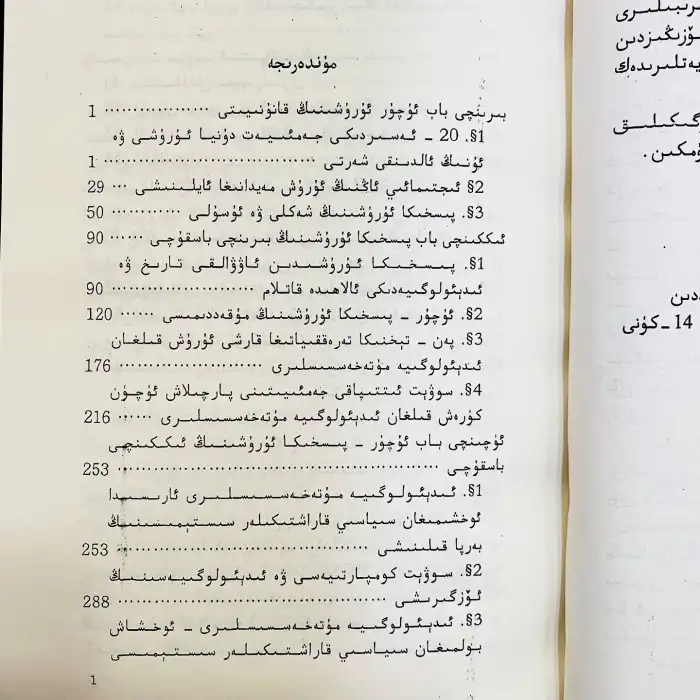 مۇندەرىجە
بىرىنچى باب ئۇچۇر ئۇرۇشىنىڭ قانۇنىيىتى ·················· 1
§1. 20 ـ ئەسىردىكى جەمئىيەت دۇنيا ئۇرۇشى ۋە
ئۇنىڭ ئالدىنقى شەرتى ······························ 1
§2 ئىجتىمائىي ئاڭنىڭ ئۇرۇش مەيدانىغا ئايلىنىشى ··· 29
§3. پىسخىكا ئۇرۇشىنىڭ شەكلى ۋە ئۇسۇلى ············ 50
ئىككىنچى باب پىسخىكا ئۇرۇشىنىڭ بىرىنچى باسقۇچى ······ 90
§1. پىسخىكا ئۇرۇشىدىن ئاۋۋالقى تارىخ ۋە
ئىدېئولوگىيەدىكى ئالاھىدە قاتلام ···················· 90
§2. ئۇچۇر ـ پىسخىكا ئۇرۇشىنىڭ مۇقەددىمىسى ······ 120
§3. پەن ـ تېخنىكا تەرەققىياتىغا قارشى ئۇرۇش قىلغان
ئىدېئولوگىيە مۇتەخەسسىسلىرى ···················· 176
§4. سوۋېت ئىتتىپاقى جەمئىيىتىنى پارچىلاش ئۈچۈن
كۈرەش قىلغان ئىدېئولوگىيە مۇتەخەسسىسلىرى ······ 216
ئۈچىنچى باب ئۇچۇر ـ پىسخىكا ئۇرۇشىنىڭ ئىككىنچى
باسقۇچى ·············································· 253
§1. ئىدېئولوگىيە مۇتەخەسسىسلىرى ئارىسىدا
ئوخشىمىغان سىياسىي قاراشتىكىلەر سىستېمىسىنىڭ
بەرپا قىلىنىشى ···································· 253
§2. سوۋېت كومپارتىيەسى ۋە ئىدېئولوگىيەسىنىڭ
ئۆزگىرىشى ······································ 288
§3. ئىدېئولوگىيە مۇتەخەسسىسلىرى ـ ئوخشاش
بولمىغان سىياسىي قاراشتىكىلەر سىستېمىسى
1
ـۆزىڭىزدىن
14 ـ كۈنى